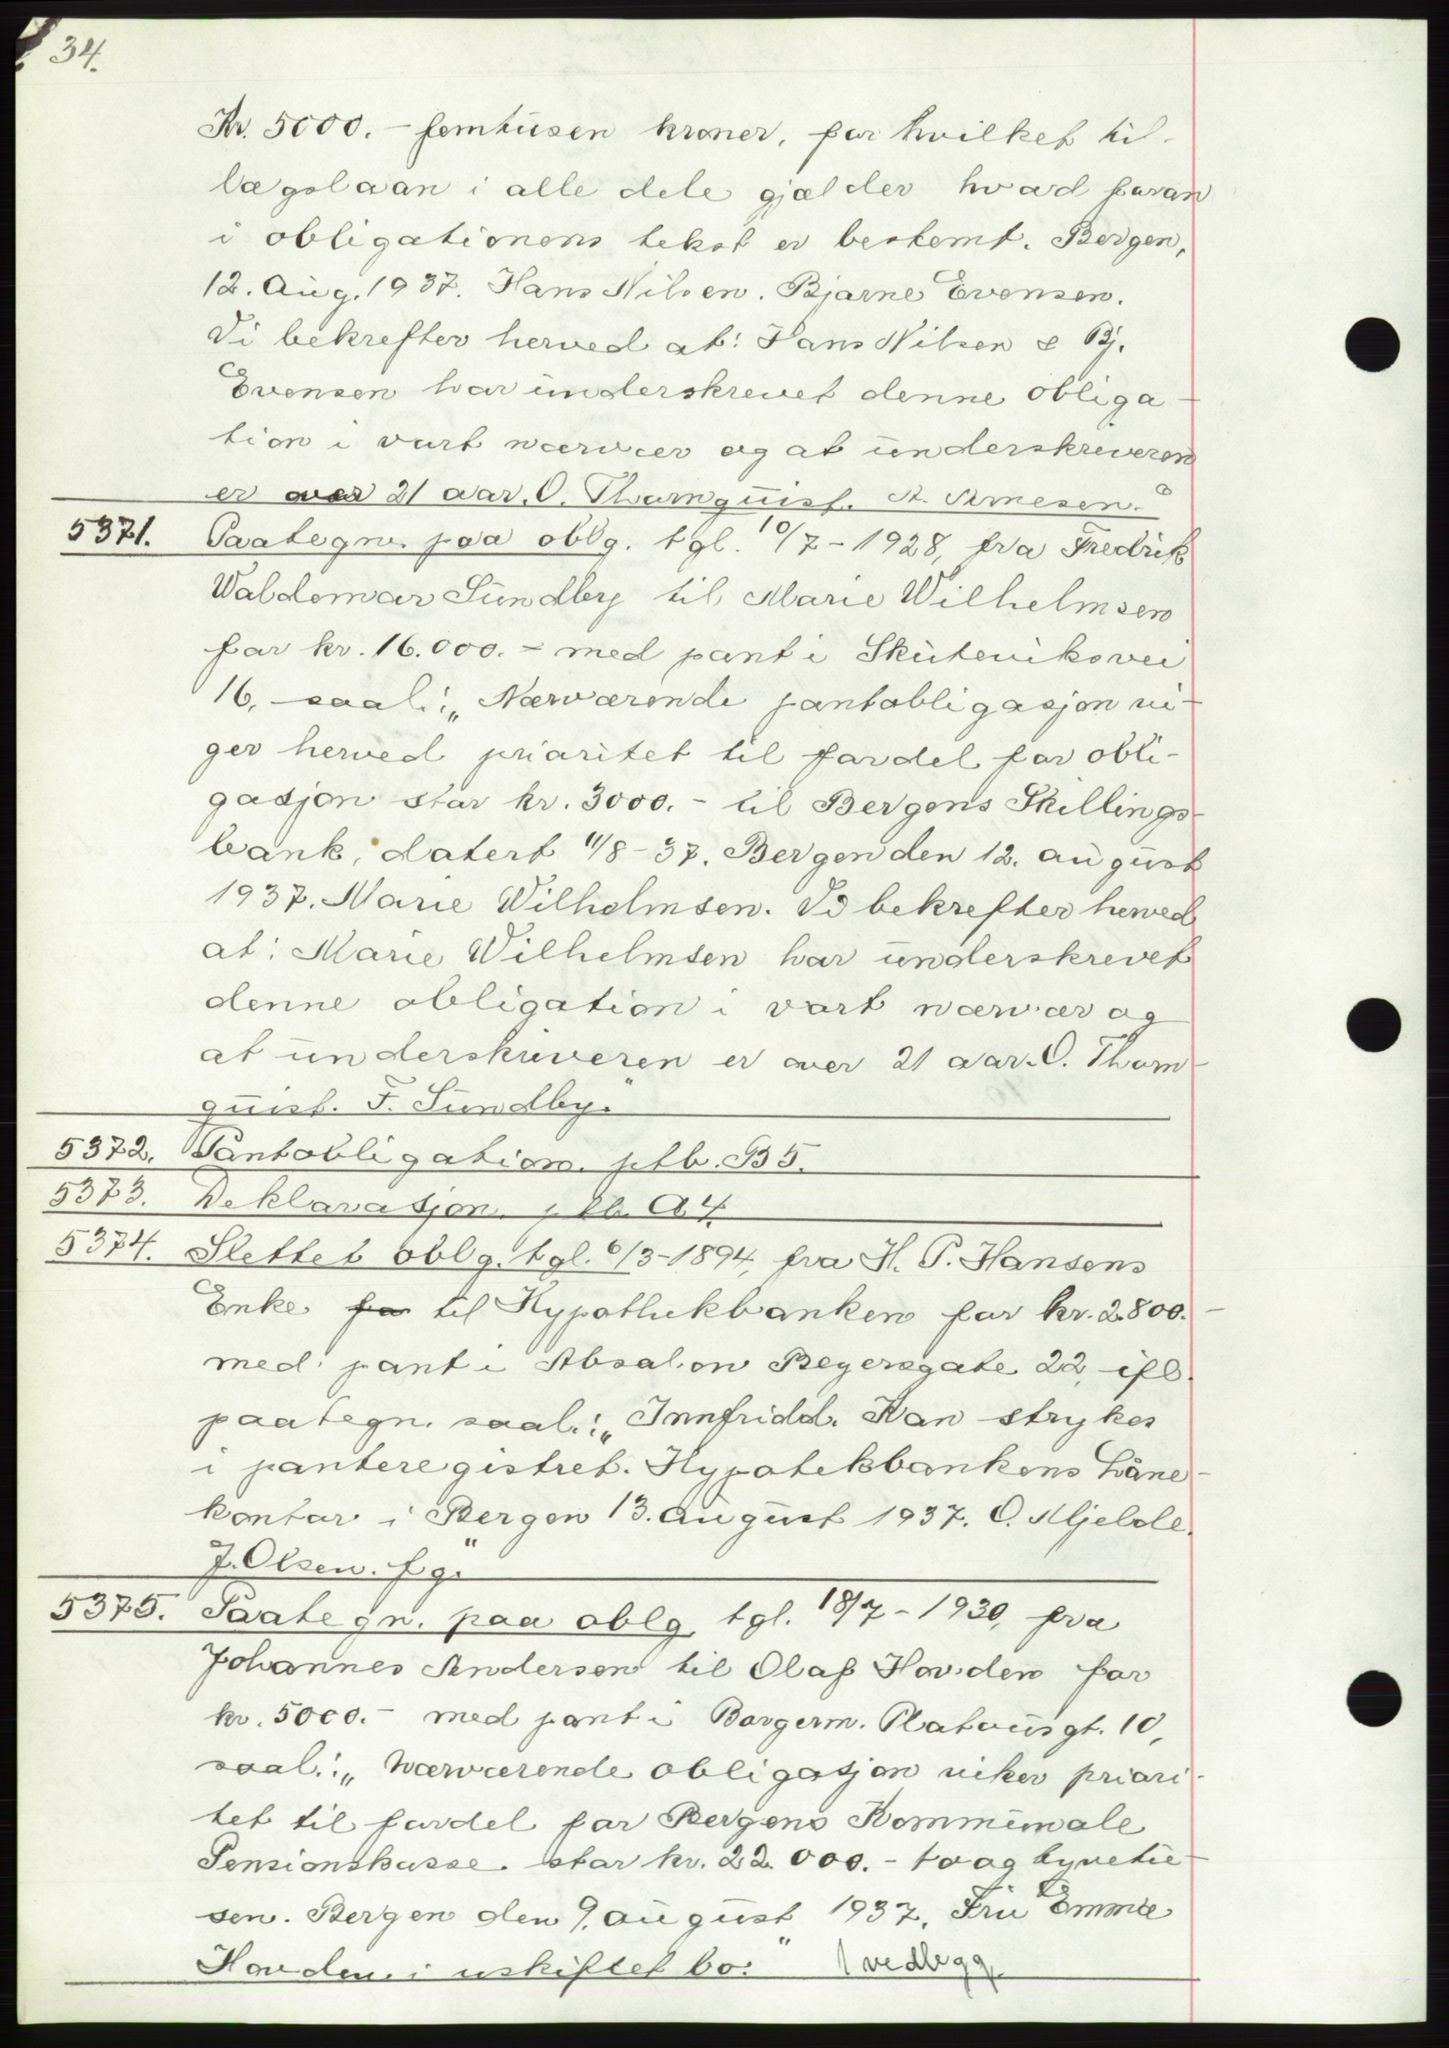 34.
Kr. 5000.- femtusen kroner, for hvilket til-
lægslaan i alle dele gjælder hvad foran
i obligationens tekst er bestemt. Bergen,
12. Aug. 1937. Hans Nilsen. Bjarne Evensen.
Vi bekrefter herved at: Hans Nilsen & Bj.
Evensen har underskrevet denne obliga-
tion i vort nærvær og at underskriveren
er over 21 aar. O. Thornquist. A. Arnesen."
5371. Paategn. paa oblg. tgl. 10/7-1928, fra Fredrik
Waldemar Sundby til Marie Wilhelmsen
for kr. 16.000.- med pant i Skuteviksvei
16, saal.: „Nærværende pantobligasjon vi-
ger herved prioritet til fordel for obli-
gasjon stor kr. 3000.- til Bergens Skillings-
bank, datert 11/8-37. Bergen den 12. august
1937. Marie Wilhelmsen. Vi bekrefter herved
at: Marie Wilhelmsen har underskrevet
denne obligation i vort nærvær og
at underskriveren er over 21 aar. O. Thorn-
quist. F. Sundby."
5372. Pantobligation. ptb. B5.
5373. Deklarasjon. ptb. A4.
5374. Slettet oblg. tgl. 6/3-1894, fra H. P. Hansens
Enke for til Hypothekbanken for kr. 2800.-
med pant i Absalon Beyersgate 22, ifl.
paategn. saal.: „Innfridd. Kan strykes
i panteregistret. Hypotekbankens Låne-
kontor i Bergen 13. august 1937. O. Mjelde.
J. Olsen. fg."
5375. Paategn. paa oblg. tgl. 18/7-1930, fra
Johannes Andersen til Olaf Hovden for
kr. 5000.- med pant i Borgerm. Platousgt. 10,
saal.: „Nærværende obligasjon viker priori-
tet til fordel for Bergens Kommunale
Pensionskasse. stor kr. 22.000.- toogtyvetu-
sen. Bergen den 9. august 1937. Fru Emma
Hovden i uskiftet bo." 1 vedlegg.